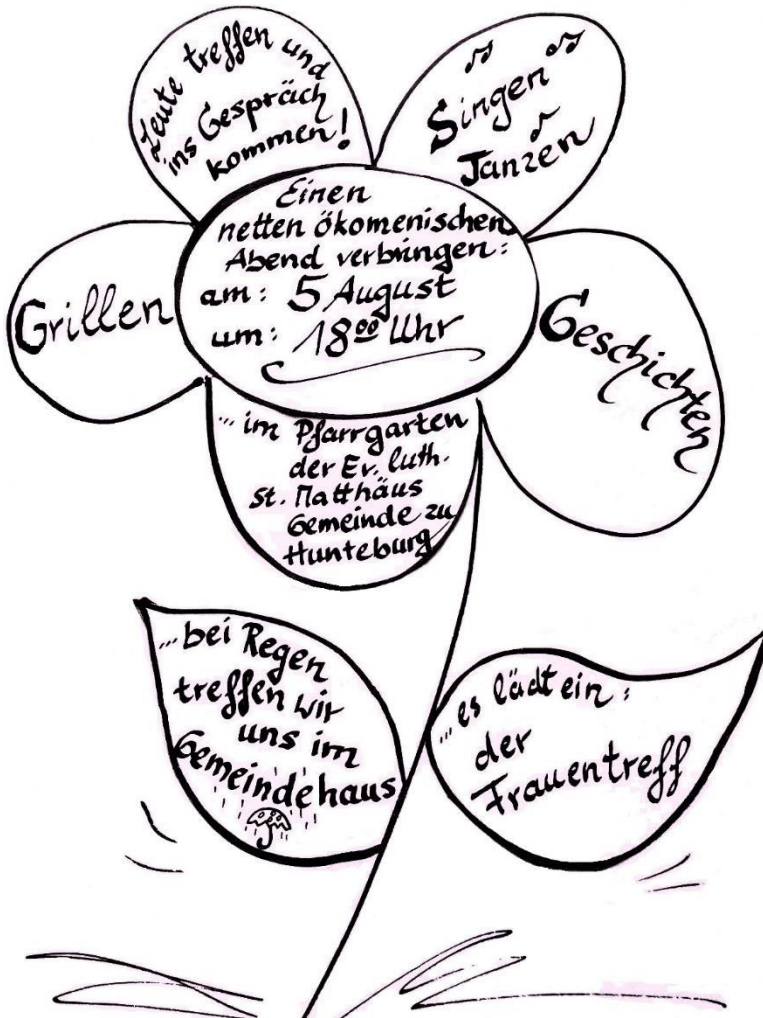 Leute treffen und
ins Gespräch
kommen!
Singen
Tanzen
Einen
netten ökomenischen
Abend verbringen:
am: 5 August
um: 18⁰⁰ Uhr
Grillen
Geschichten
...im Pfarrgarten
der Ev. luth.
St. Matthäus
Gemeinde zu
Hunteburg
...bei Regen
treffen wir
uns im
Gemeindehaus
...es lädt ein:
der
Frauentreff